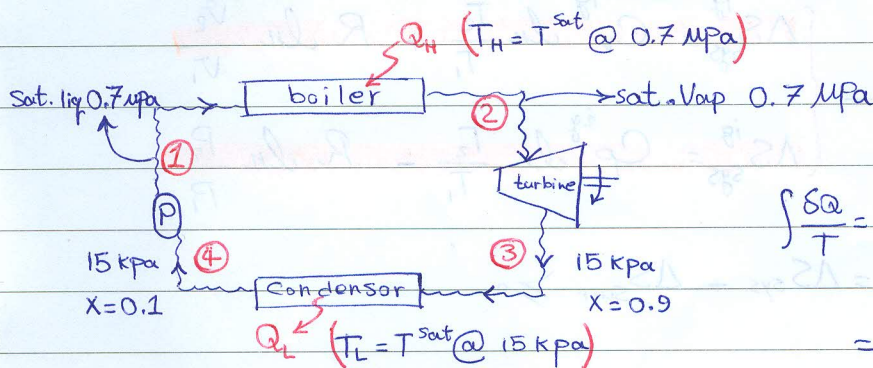 Q_H (T_H = T^sat @ 0.7 MPa)
Sat. liq 0.7 MPa
boiler
②
sat. Vap 0.7 MPa
①
turbine
P
∫ δQ/T =
15 kpa
④
③
15 kpa
X=0.1
Condensor
X=0.9
Q_L (T_L = T^sat @ 15 kpa)
=